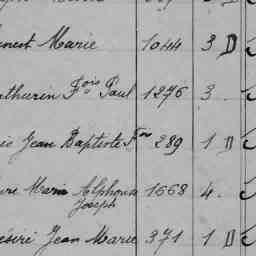 nest Marie 1044 3 D
athurin Fois Paul 1276 3
Jean Baptiste Fm 289 1 D
Marie Alphonse 1668 4.
Joseph
ésiré Jean Marie 371 1 D